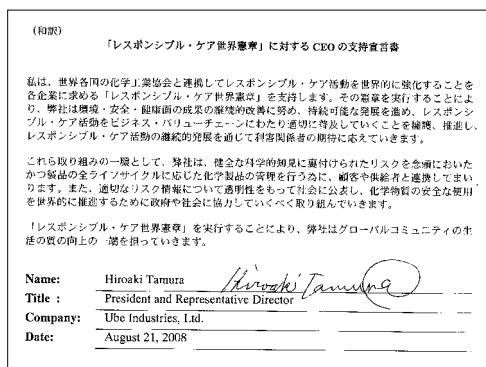 (和訳)
「レスポンシブル・ケア世界憲章」に対する CEO の支持宣言書
私は、世界各国の化学工業協会と連携してレスポンシブル・ケア活動を世界的に強化することを
各企業に求める「レスポンシブル・ケア世界憲章」を支持します。その憲章を実行することによ
り、弊社は環境・安全・健康面の成果の継続的改善に努め、持続可能な発展を進め、レスポンシ
ブル・ケア活動をビジネス・バリューチェーンにわたり適切に普及していくことを擁護、推進し、
レスポンシブル・ケア活動の継続的発展を通じて利害関係者の期待に応えていきます。
これら取り組みの一環として、弊社は、健全な科学的知見に裏付けられたリスクを念頭においた
かつ製品の全ライフサイクルに応じた化学製品の管理を行う為に、顧客や供給者と連携してまい
ります。また、適切なリスク情報について透明性をもって社会に公表し、化学物質の安全な使用
を世界的に推進するために政府や社会に協力していくべく取り組んでいきます。
「レスポンシブル・ケア世界憲章」を実行することにより、弊社はグローバルコミュニティの生
活の質の向上の一端を担っていきます。
Name: Hiroaki Tamura Hiroaki Tamura
Title : President and Representative Director
Company: Ube Industries, Ltd.
Date: August 21, 2008